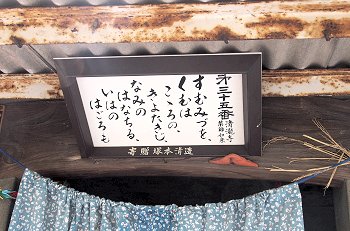 第三十五番 清瀧寺
薬師如来
すむみづを、
くむは
こころの、
きよたきじ
なみの
はなちる、
いはの
はごろも
寄贈 塚本清造